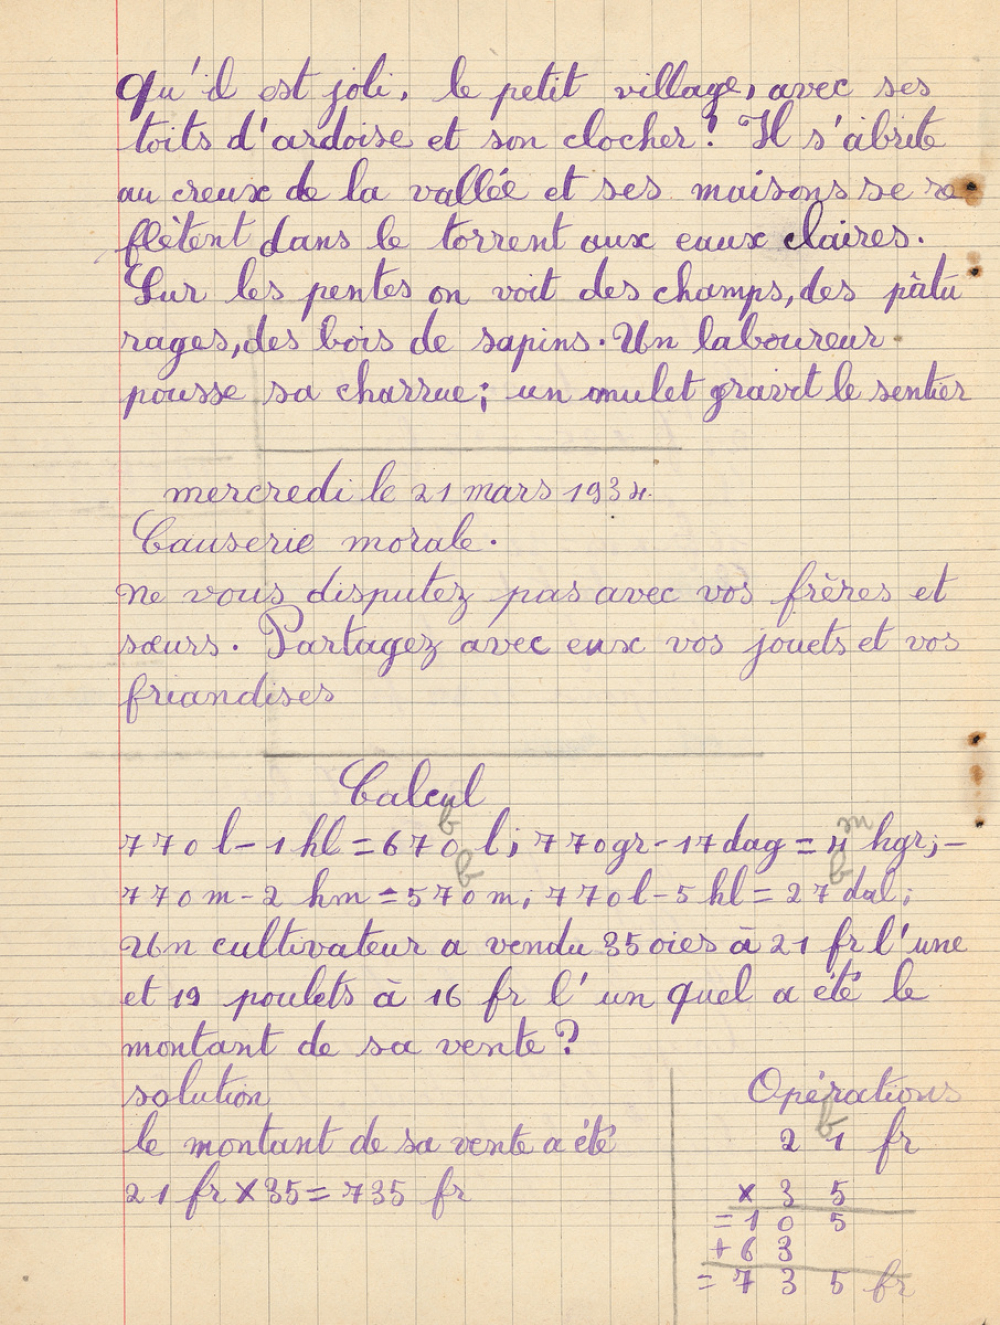 Qu'il est joli, le petit village, avec ses
toits d'ardoise et son clocher! Il s'abrite
au creux de la vallée et ses maisons se re
flètent dans le torrent aux eaux claires.
Sur les pentes on voit des champs, des pâtu
rages, des bois de sapins. Un laboureur
pousse sa charrue; un mulet gravit le sentier
mercredi le 21 mars 1934.
Causerie morale.
ne vous disputez pas avec vos frères et
sœurs. Partagez avec eux vos jouets et vos
friandises
Calcul
b m
770 l - 1 hl = 670 l; 770 gr - 17 dag = 4 hgr; -
b b
770 m - 2 hm = 570 m; 770 l - 5 hl = 27 dal;
Un cultivateur a vendu 35 oies à 21 fr l'une
et 19 poulets à 16 fr l'un quel a été le
montant de sa vente?
solution
le montant de sa vente a été
21 fr x 35 = 735 fr
Opérations
b
2 1 fr
x 3 5
= 1 0 5
+ 6 3
= 7 3 5 fr